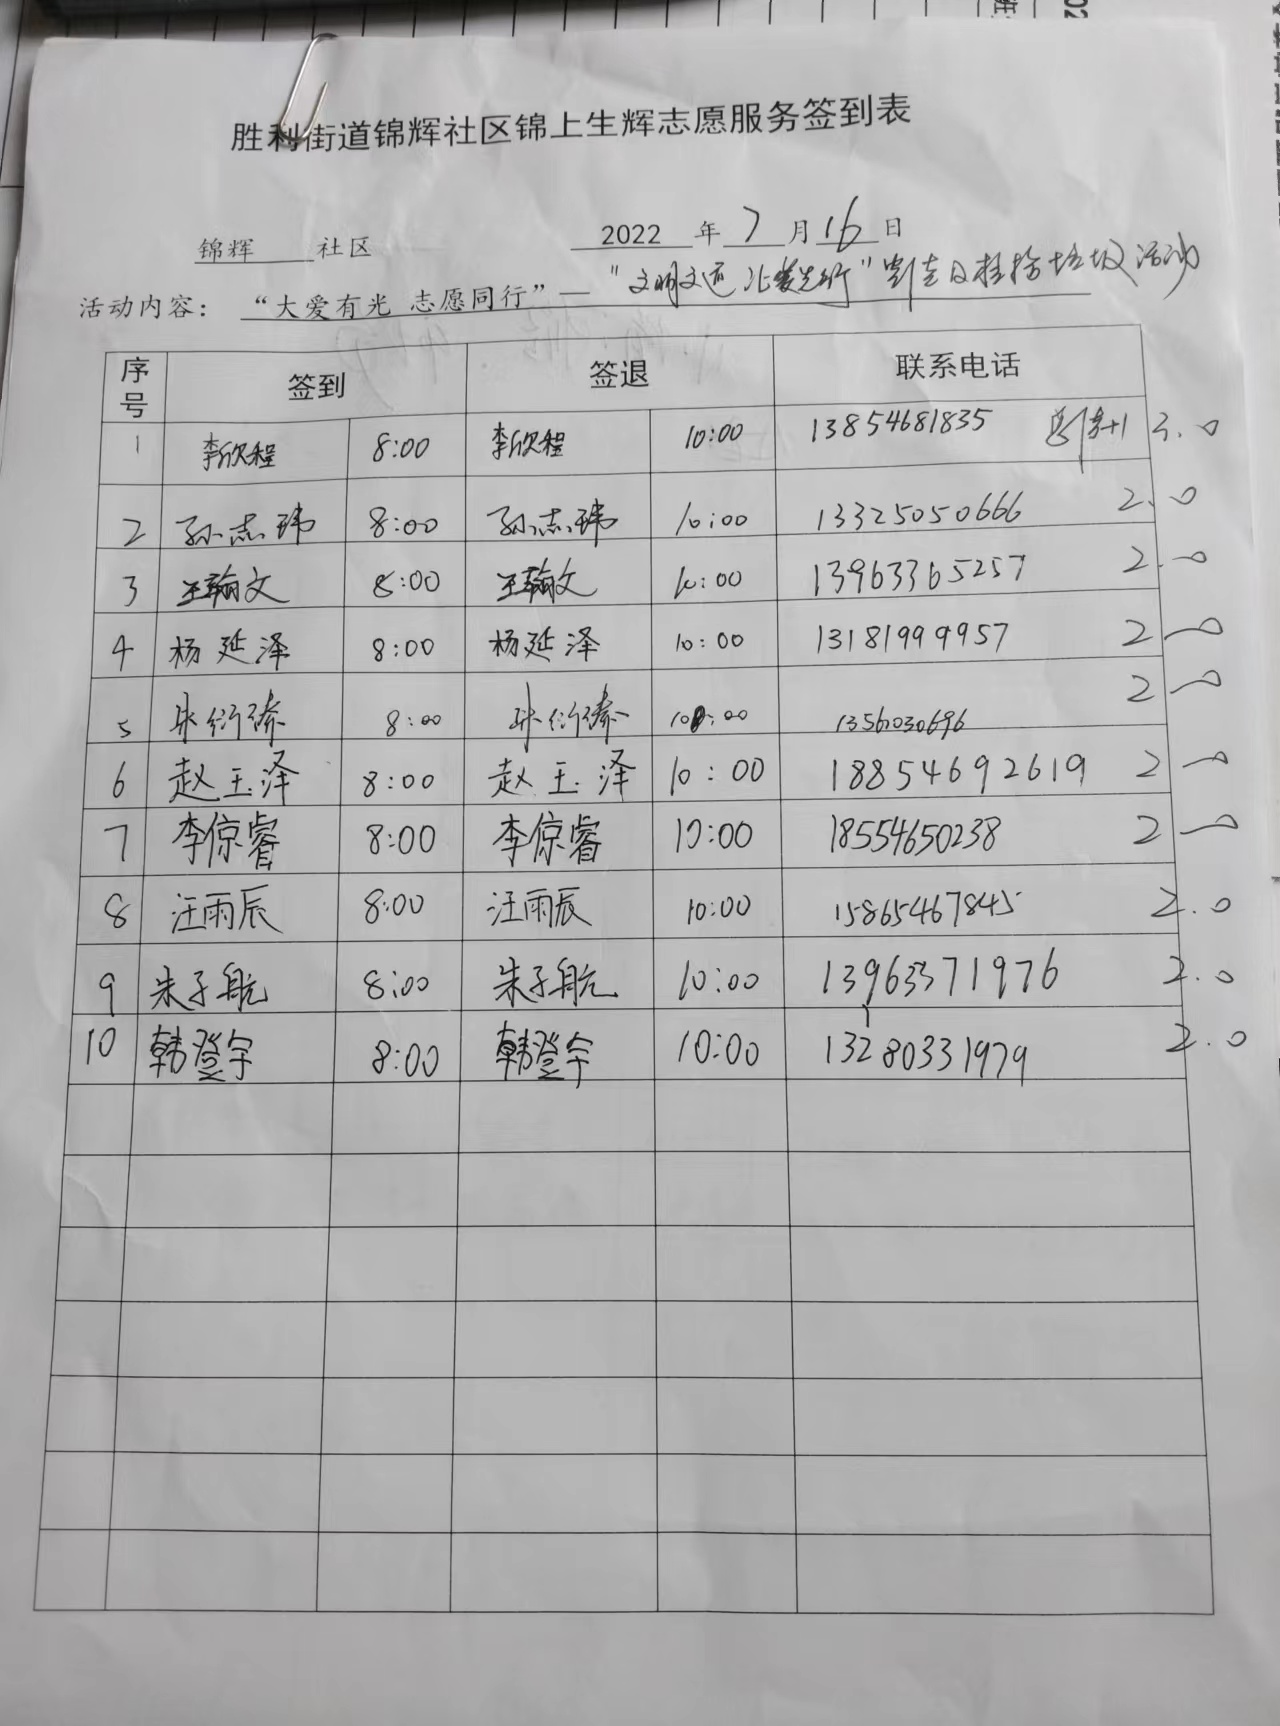 胜利街道锦辉社区锦上生辉志愿服务签到表
锦辉 社区 2022 年 7 月 16 日
活动内容： “大爱有光 志愿同行”— “文明交通 礼让先行” 捡垃圾活动
序号 签到 签退 联系电话
1 李欣程 8:00 李欣程 10:00 13854681835 +1 3.0
2 孙志玮 8:00 孙志玮 10:00 13325050666 2.0
3 王翰文 8:00 王翰文 10:00 13963365257 2.0
4 杨延泽 8:00 杨延泽 10:00 13181999957 2.0
5 8:00 10:00 13561030696 2.0
6 赵玉泽 8:00 赵玉泽 10:00 18854692619 2.0
7 李倞睿 8:00 李倞睿 10:00 18554650238 2.0
8 汪雨辰 8:00 汪雨辰 10:00 15865467845 2.0
9 朱子航 8:00 朱子航 10:00 13963371976 2.0
10 韩登宇 8:00 韩登宇 10:00 13280331979 2.0